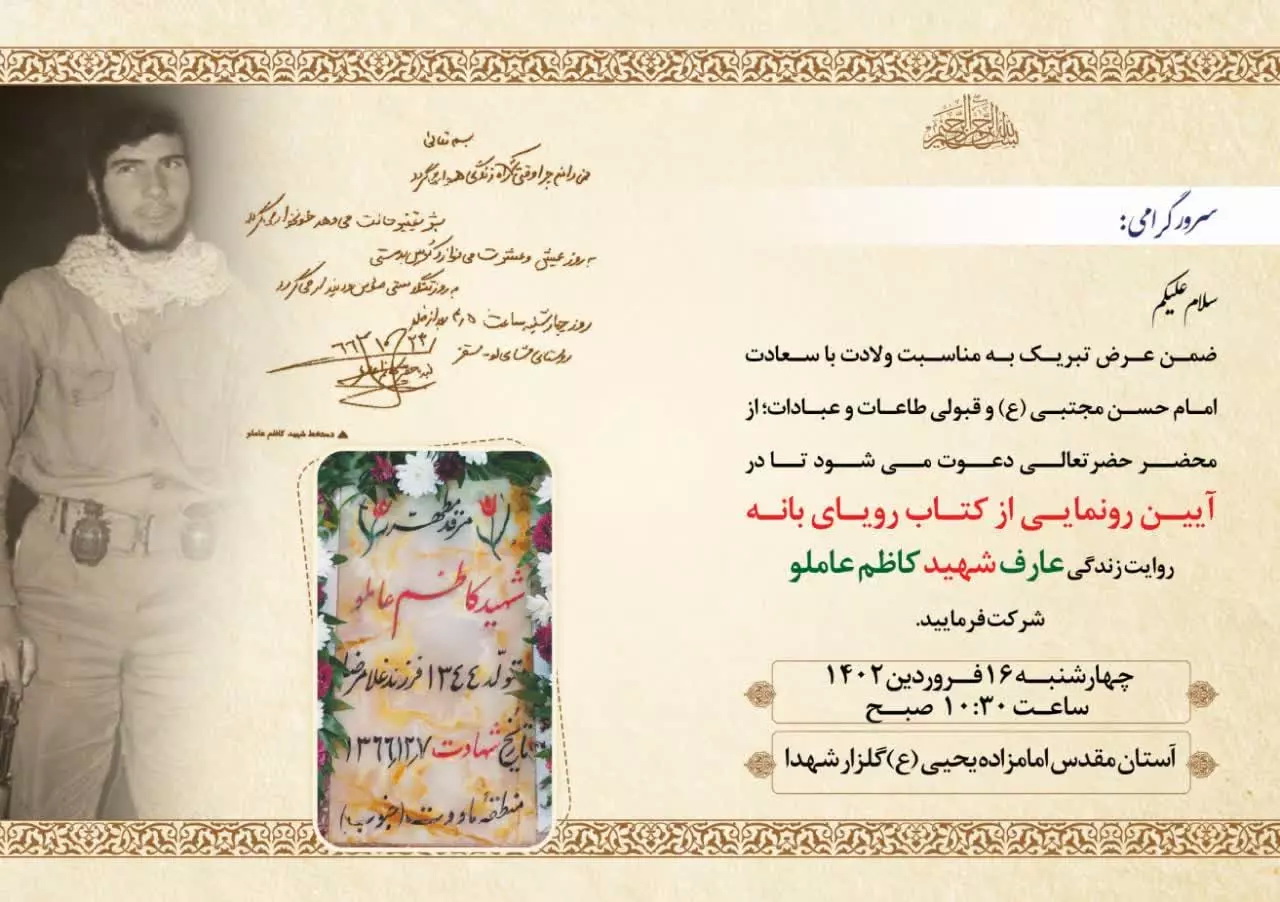 بسم الله الرحمن الرحیم
سرور گرامی:
سلام علیکم
ضمن عرض تبریک به مناسبت ولادت با سعادت
امام حسن مجتبی (ع) و قبولی طاعات و عبادات؛ از
محضر حضرتعالی دعوت می شود تا در
آیین رونمایی از کتاب رویای بانه
روایت زندگی عارف شهید کاظم عاملو
شرکت فرمایید.
چهارشنبه ۱۶ فروردین ۱۴۰۲
ساعت ۱۰:۳۰ صبح
آستان مقدس امامزاده یحیی (ع) گلزار شهدا
بسم تعالی
به روز عیش و عشرت می‌نوازد
به روز تنگدستی
روز چهارشنبه ساعت
روستای سقز
۶۶/۱۰/۲۳
▲ دستخط شهید کاظم عاملو
مرقد مطهر
شهید کاظم عاملو
تولد ۱۳۴۴ فرزند غلامرضا
تاریخ شهادت ۱۳۶۶/۱۲/۷
منطقه ماووت (جنوب)